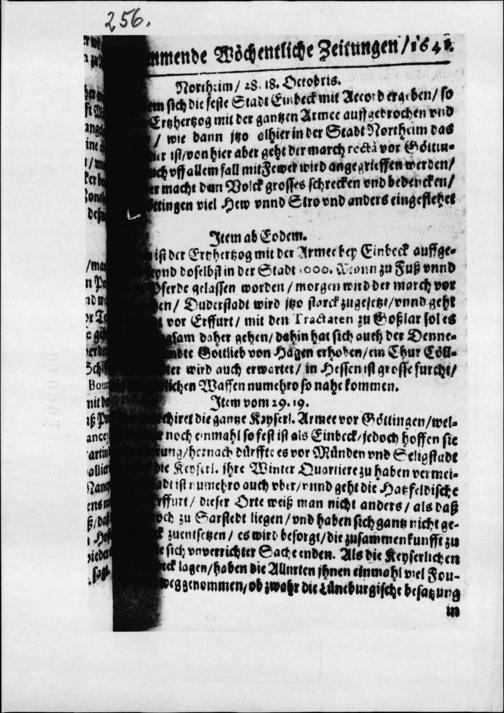 256.
mmende Wöchentliche Zeitungen/1641.
Northeim/ 28.18. Octobris.
em sich die feste Stadt Einbeck mit Accord ergeben/ so
Ertzhertzog mit der gantzen Armee auffgebrochen vnd
/ wie dann jtzo alhier in der Stadt Northeim das
er ist/von hier aber geht der march rectà vor Götin-
ch off allem fall mit Fewer wird angegrieffen werden/
er macht dem Volck grosses schrecken vnd bedencken/
ttingen viel Hew vnnd Stro vnd anders eingeflehet
Item ab Eodem.
ist der Ertzhertzog mit der Armee bey Einbeck auffge-
vnd doselbst in der Stadt 1000. Mann zu Fuß vnnd
Pferde gelassen worden/ morgen wird der march vor
en/ Duderstadt wird jtzo starck zugesetzt/vnnd geht
t vor Erffurt/ mit den Tractaten zu Goßlar sol es
gsam daher gehen/ dahin hat sich auch der Denne-
ndte Gottlieb von Hagen erhoben/ein Chur Cöll-
ter wird auch erwartet/ in Hessen ist grosse furcht/
lichen Waffen numehro so nahe kommen.
Item vom 29.19.
chiret die gantze Keyserl. Armee vor Göttingen/wel-
er noch einmahl so fest ist als Einbeck/jedoch hoffen sie
rung/hernach dürffte es vor Münden vnd Seligstadt
die Keyserl. jhre Winter Quartiere zu haben vermei-
adt ist numehro auch vber/vnnd geht die Hatzfeldische
rffurt/ dieser Orte weiß man nicht anders/ als daß
och zu Sarstedt liegen/vnd haben sich gantz nicht ge-
ck zuentsetzen/ es wird besorgt/die zusammenkunfft zu
e sich vnverrichter Sache enden. Als die Keyserlichen
eck lagen/haben die Alliirten jhnen einmahl viel Fou-
weggenommen/ob zwahr die Lüneburgische besatzung
in